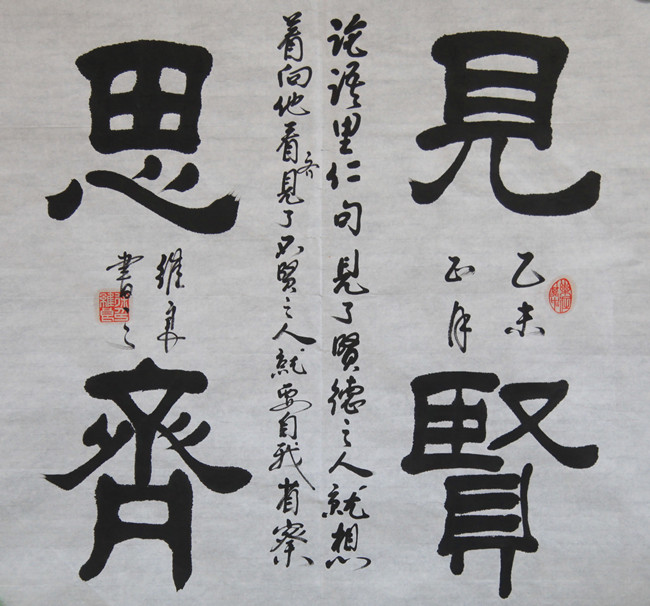 見賢
乙未
正月
論語里仁句見了賢德之人就想
着向他看齐見了不賢之人就要自我省察
思齊
維
書之